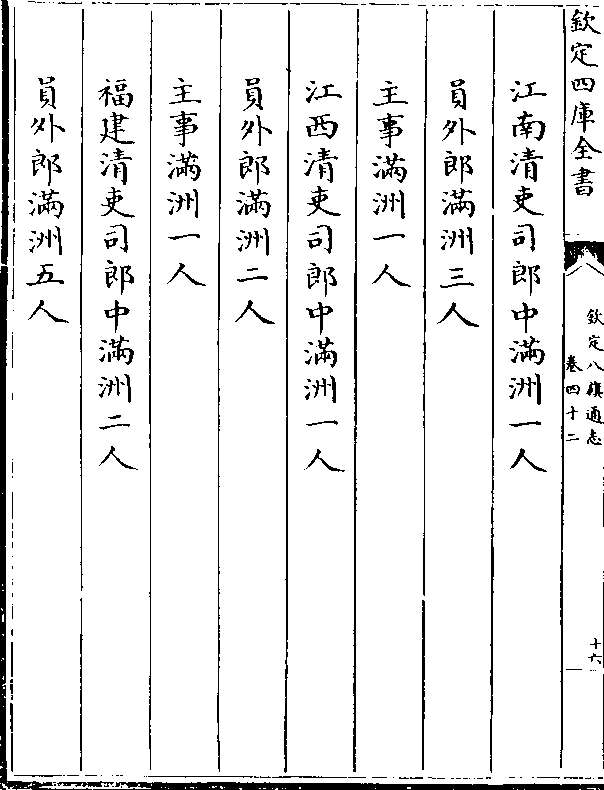 欽定四庫全書
欽定八旗通志
卷四十二
十六
江南清吏司郎中滿洲一人
員外郎滿洲三人
主事滿洲一人
江西清吏司郎中滿洲一人
員外郎滿洲二人
主事滿洲一人
福建清吏司郎中滿洲二人
員外郎滿洲五人